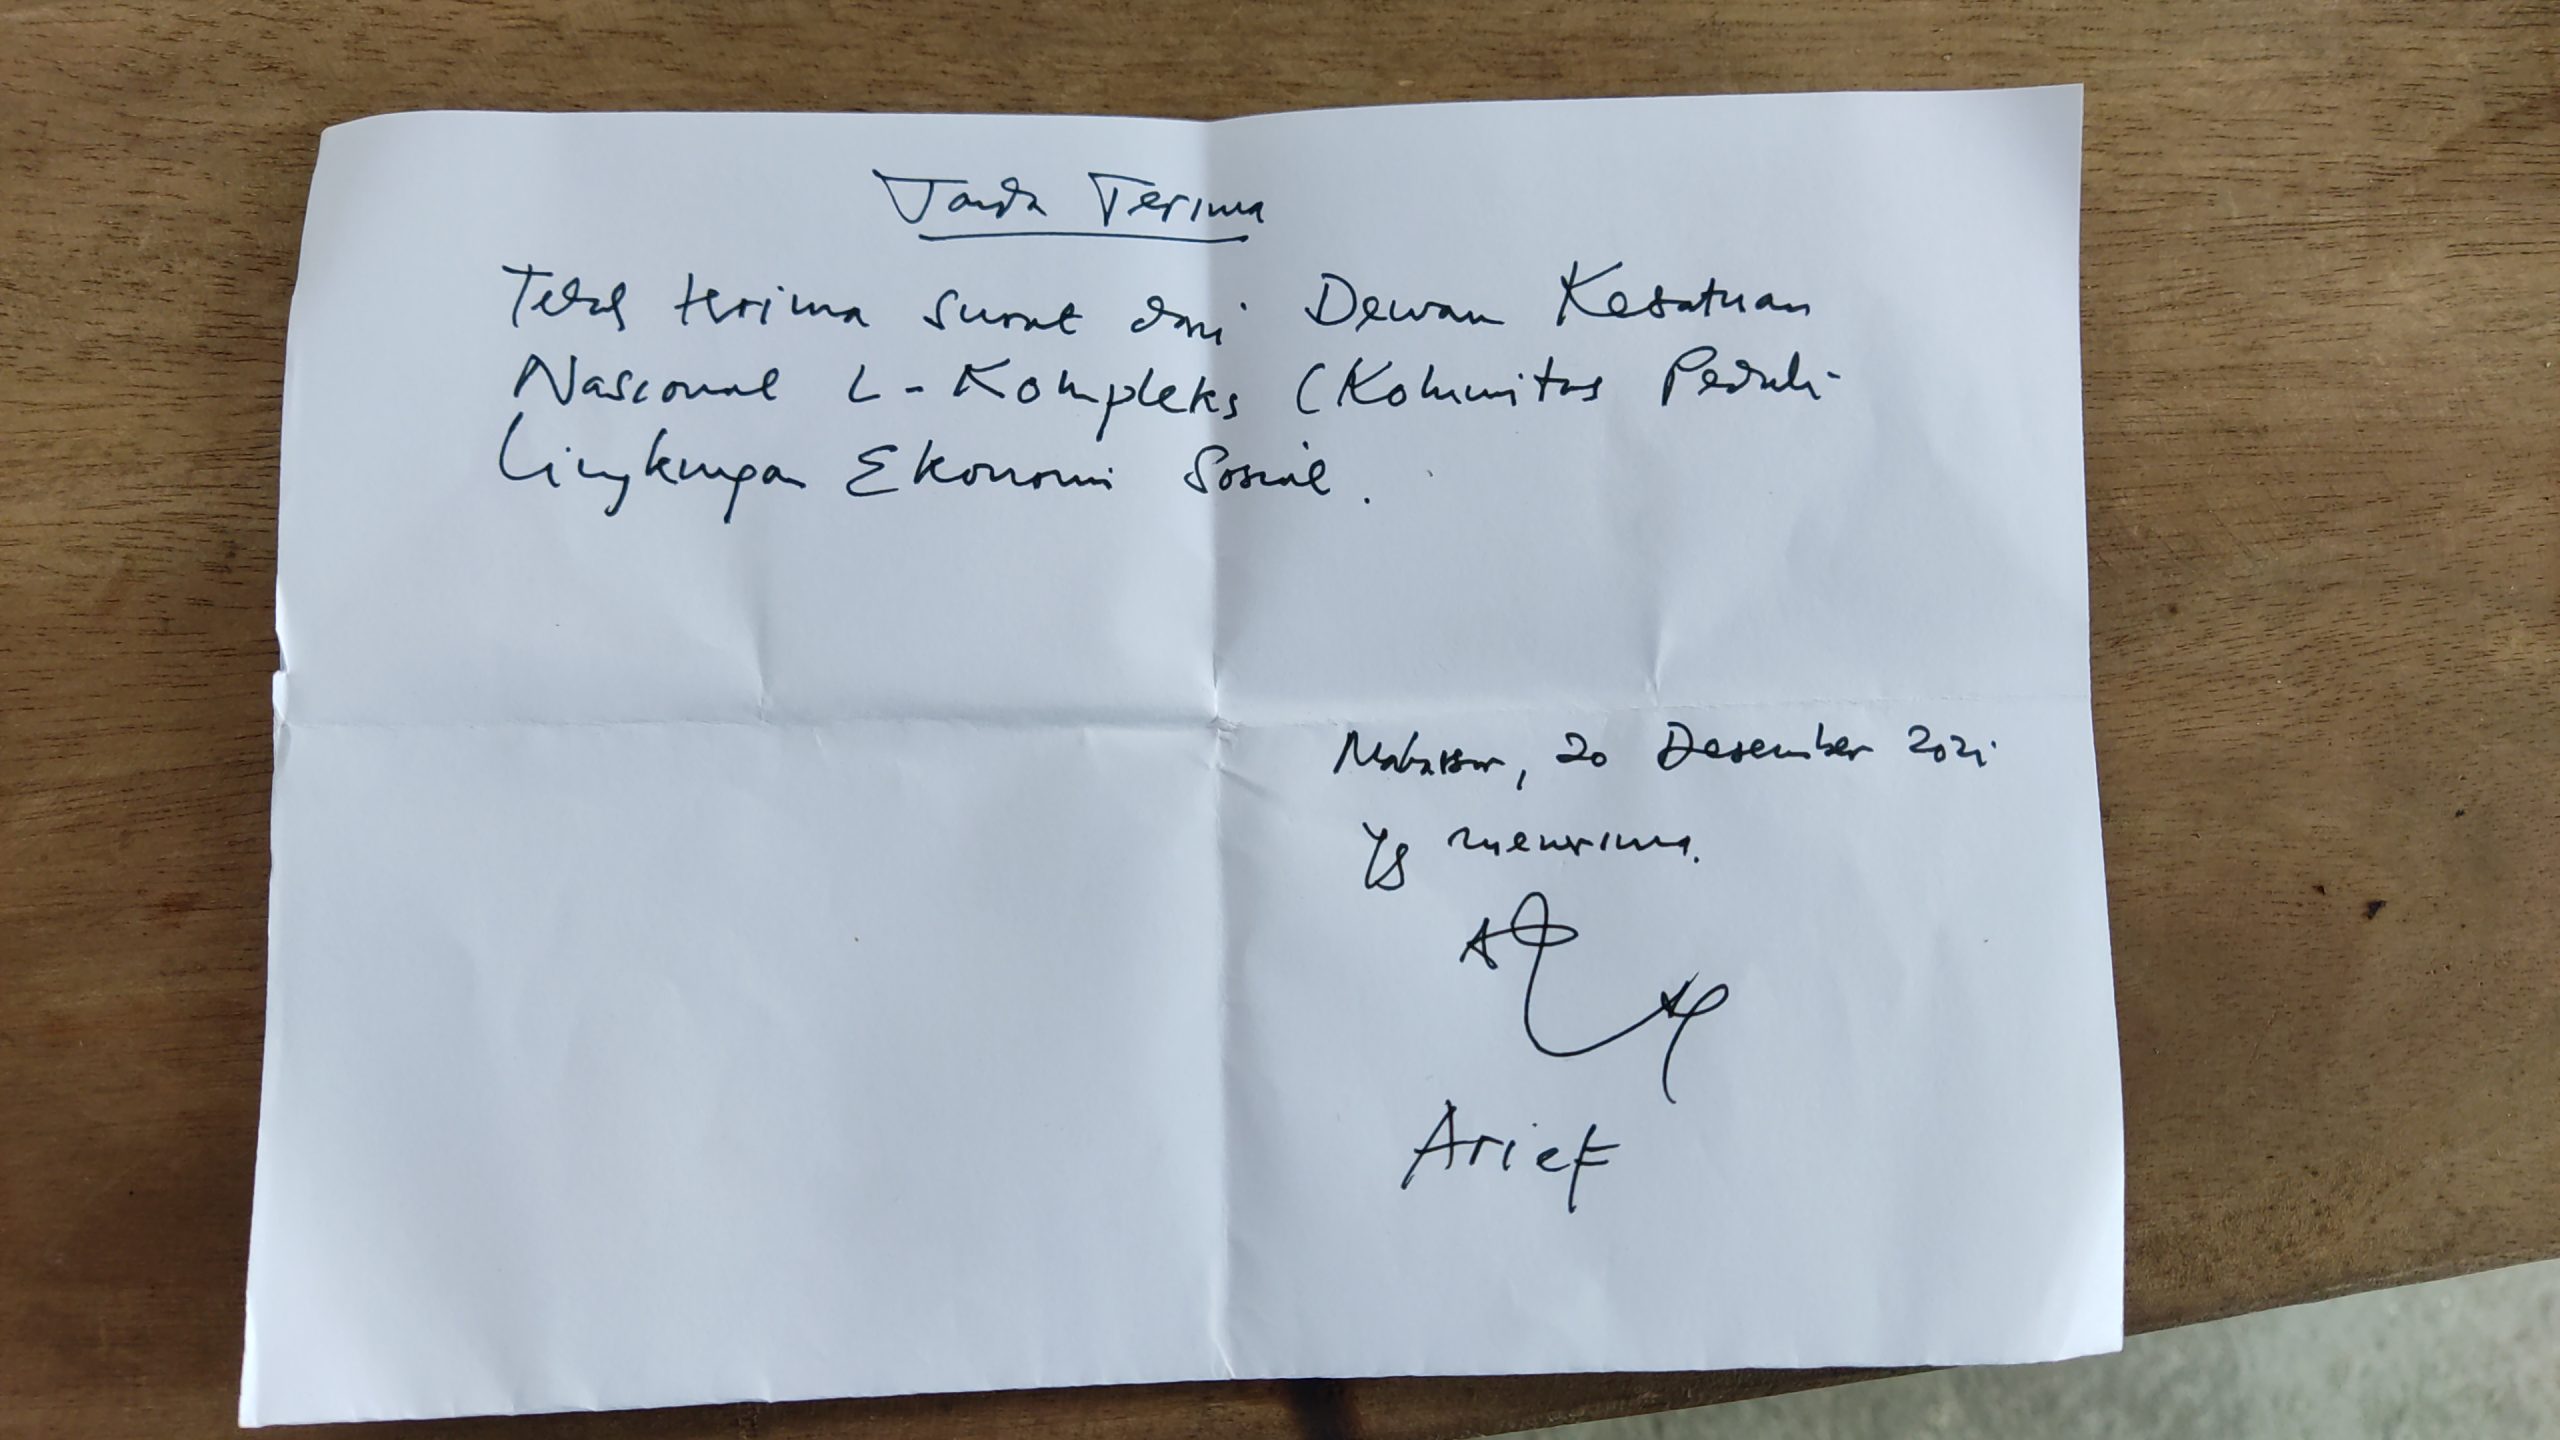 Tanda Terima
Telah terima surat dari Dewan Kesatuan
Nasional L-Kompleks (Komunitas Peduli
Lingkungan Ekonomi Sosial.
Makassar, 20 Desember 2021
Yg menerima.
Arief